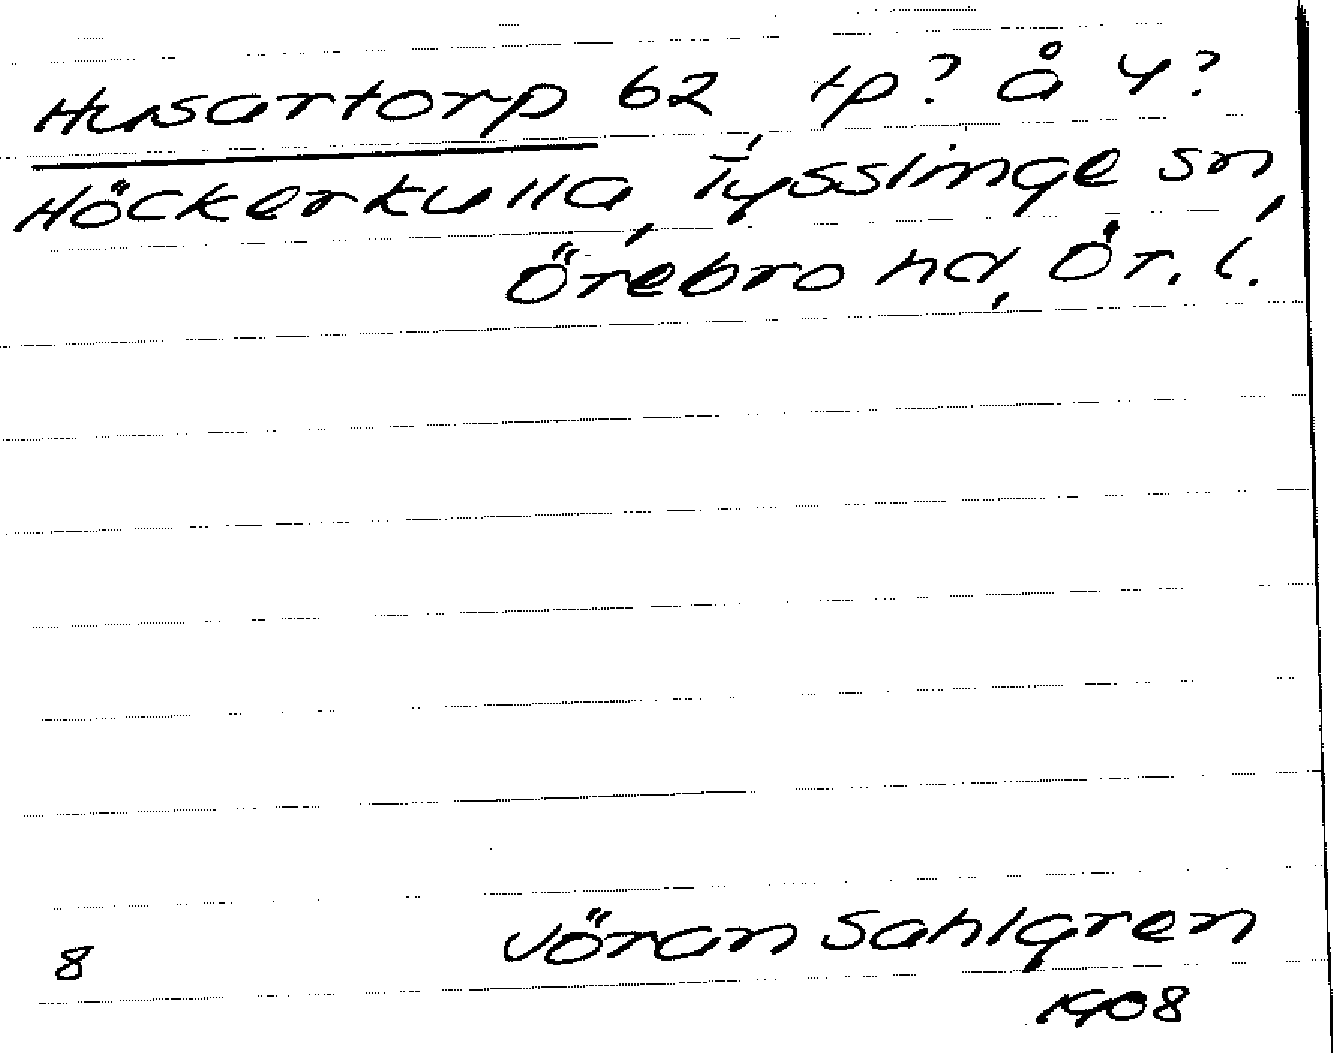 Husartorp 62 tp? å 4?
Höckerkulla, Tysslinge sn,
Örebro hd, Ör. l.
Jöran Sahlgren
8
1908